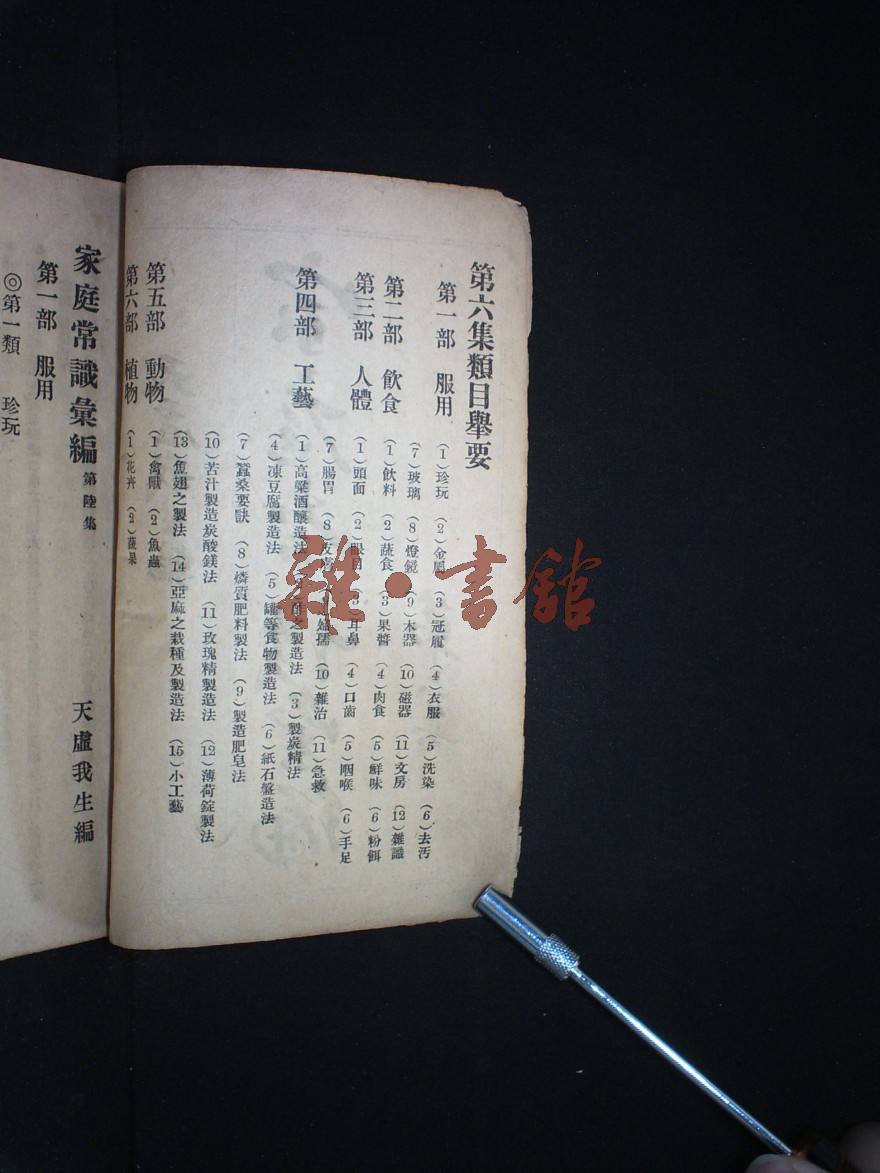 第六集類目舉要
第一部　服用　（1）珍玩　（2）金屬　（3）冠履　（4）衣服　（5）洗染　（6）去汚
（7）玻璃　（8）燈鏡　（9）木器　（10）磁器　（11）文房　（12）雜識
第二部　飲食　（1）飲料　（2）蔬食　（3）果醬　（4）肉食　（5）鮮味　（6）粉餌
第三部　人體　（1）頭面　（2）眼目　（3）耳鼻　（4）口齒　（5）咽喉　（6）手足
（7）腸胃　（8）皮膚　婦孺　（10）雜治　（11）急救
第四部　工藝　（1）高粱酒釀造法　酢之製造法　（3）製炭精法
（4）凍豆腐製造法　（5）罐等食物製造法　（6）紙石盤造法
（7）蠶桑要訣　（8）燐質肥料製法　（9）製造肥皂法
（10）苦汁製造炭酸鎂法　（11）玫瑰精製造法　（12）薄荷錠製法
（13）魚翅之製法　（14）亞麻之栽種及製造法　（15）小工藝
第五部　動物　（1）禽獸　（2）魚蟲
第六部　植物　（1）花卉　（2）蔬果
家庭常識彙編　第陸集　天虛我生編
第一部　服用
◎第一類　珍玩
雜·書館